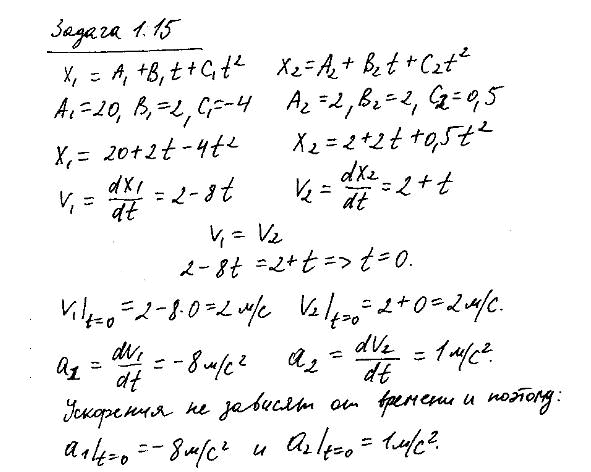 Задача 1.15
x₁ = A₁ + B₁t + C₁t²   x₂ = A₂ + B₂t + C₂t²
A₁ = 20, B₁ = 2, C₁ = -4   A₂ = 2, B₂ = 2, C₂ = 0,5
x₁ = 20 + 2t - 4t²   x₂ = 2 + 2t + 0,5t²
v₁ = dx₁/dt = 2 - 8t   v₂ = dx₂/dt = 2 + t
v₁ = v₂
2 - 8t = 2 + t => t = 0.
v₁|t=0 = 2 - 8·0 = 2 м/с   v₂|t=0 = 2 + 0 = 2 м/с.
a₁ = dv₁/dt = -8 м/с²   a₂ = dv₂/dt = 1 м/с².
Ускорения не зависят от времени и поэтому:
a₁|t=0 = -8 м/с² и a₂|t=0 = 1 м/с².